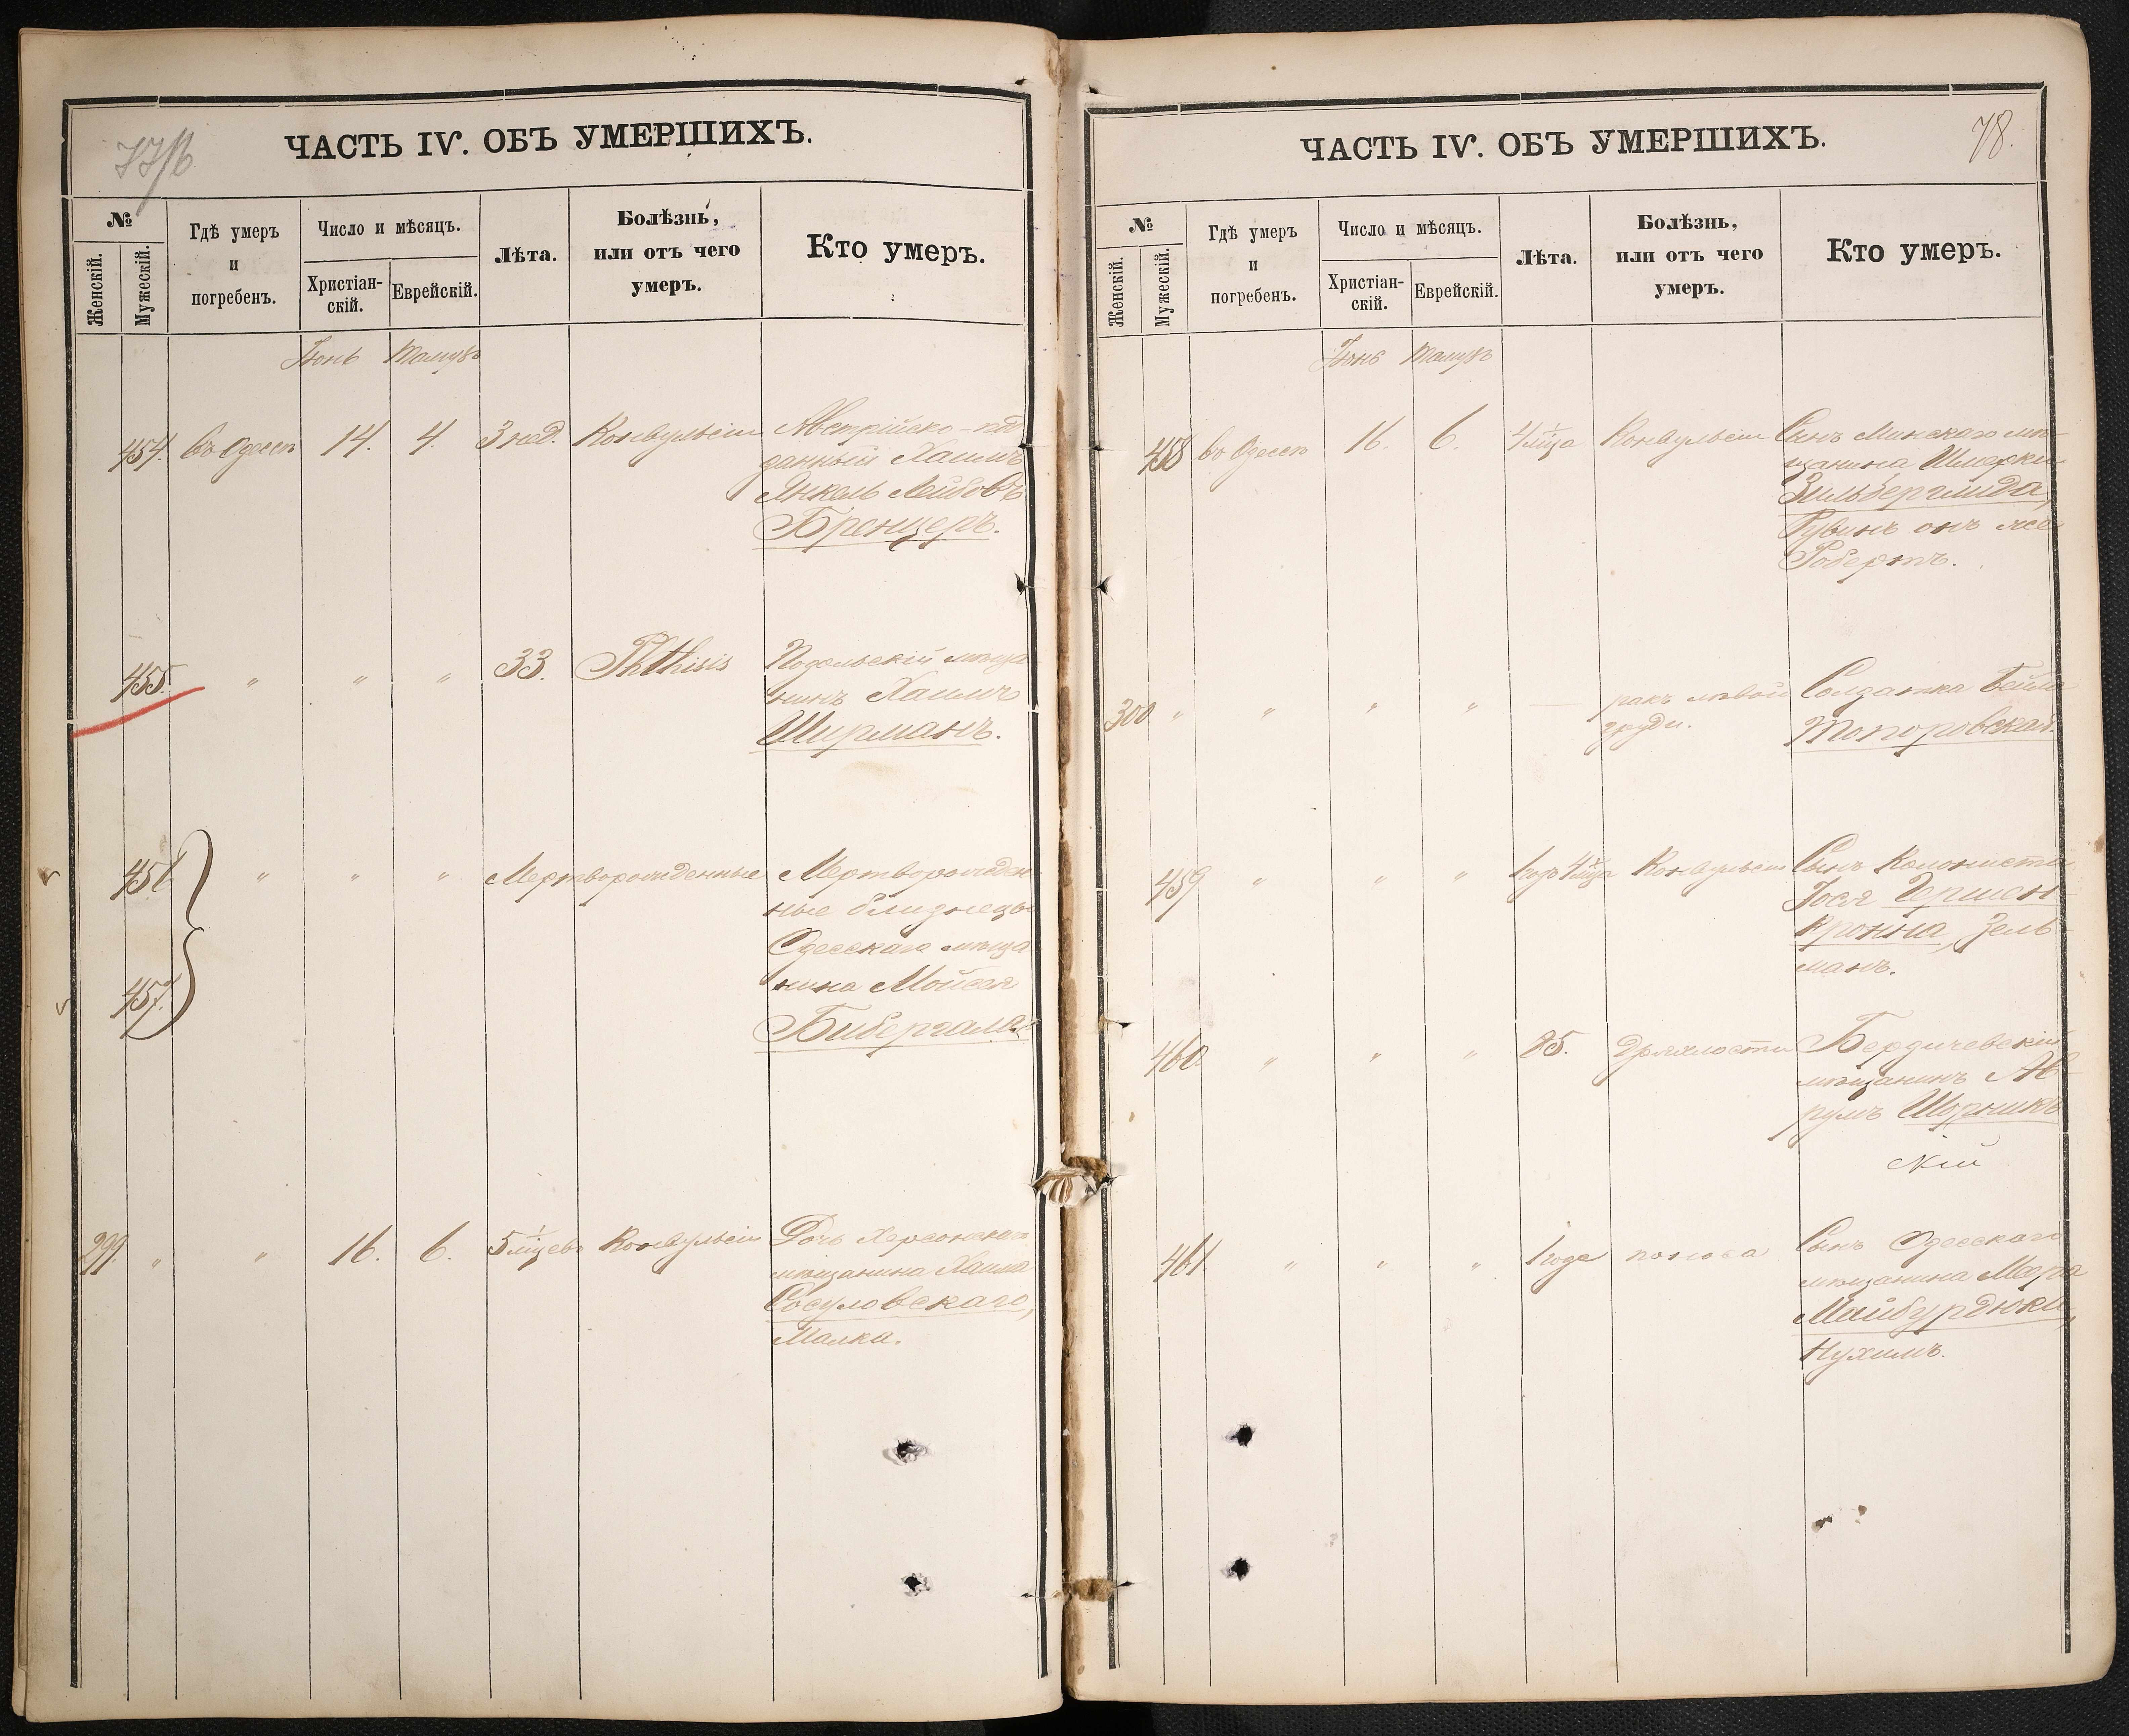 77/б
ЧАСТЬ IV. ОБЪ УМЕРШИХЪ.
№
Женскій.
Мужескій.
Гдѣ умеръ
и
погребенъ.
Число и мѣсяцъ.
Христіан-
скій.
Еврейскій.
Лѣта.
Болѣзнь,
или отъ чего
умеръ.
Кто умеръ.
Іюнь Тамузъ
454. въ Одессѣ 14. 4. 3 нед. Конвульсіи Австрійско-под
данный Хаимъ
Янкель Лейбовъ
Бренцеръ.
455. " " " 33. Phthisis Подольскій мѣща
нинъ Хаимъ
Ширманъ.
456 " " " Мертворожденные Мертворожден
457. ные близнецы
Одесскаго мѣща
нина Мойсея
Бибергаля
299. " " 16. 6. 5 мѣцевъ Конвульсіи Дочь Херсонскаго
мѣщанина Хаима
Сосуловскаго,
Малка.
78.
ЧАСТЬ IV. ОБЪ УМЕРШИХЪ.
№
Женскій.
Мужескій.
Гдѣ умеръ
и
погребенъ.
Число и мѣсяцъ.
Христіан-
скій.
Еврейскій.
Лѣта.
Болѣзнь,
или отъ чего
умеръ.
Кто умеръ.
Іюнь Тамузъ
458 въ Одессѣ 16. 6. 4 мѣца Конвульсіи Сынъ Минскаго мѣ-
щанина Шмерки
Зильберглида,
Рувинъ онъ же
Робертъ.
300 " " " " — ракъ лѣвой Солдатка Бейла
груди. Топоровская.
459 " " " 1 годъ 4 мѣца Конвульсіи Сынъ Колониста
Іося Гершен-
кронна, Зель-
манъ.
460 " " " 85. Дряхлости Бердичевскій
мѣщанинъ Ав-
румъ Шорник
скій
461 " " " 1 года поноса Сынъ Одесскаго
мѣщанина Меера
Майбурдюка,
Нухимъ.